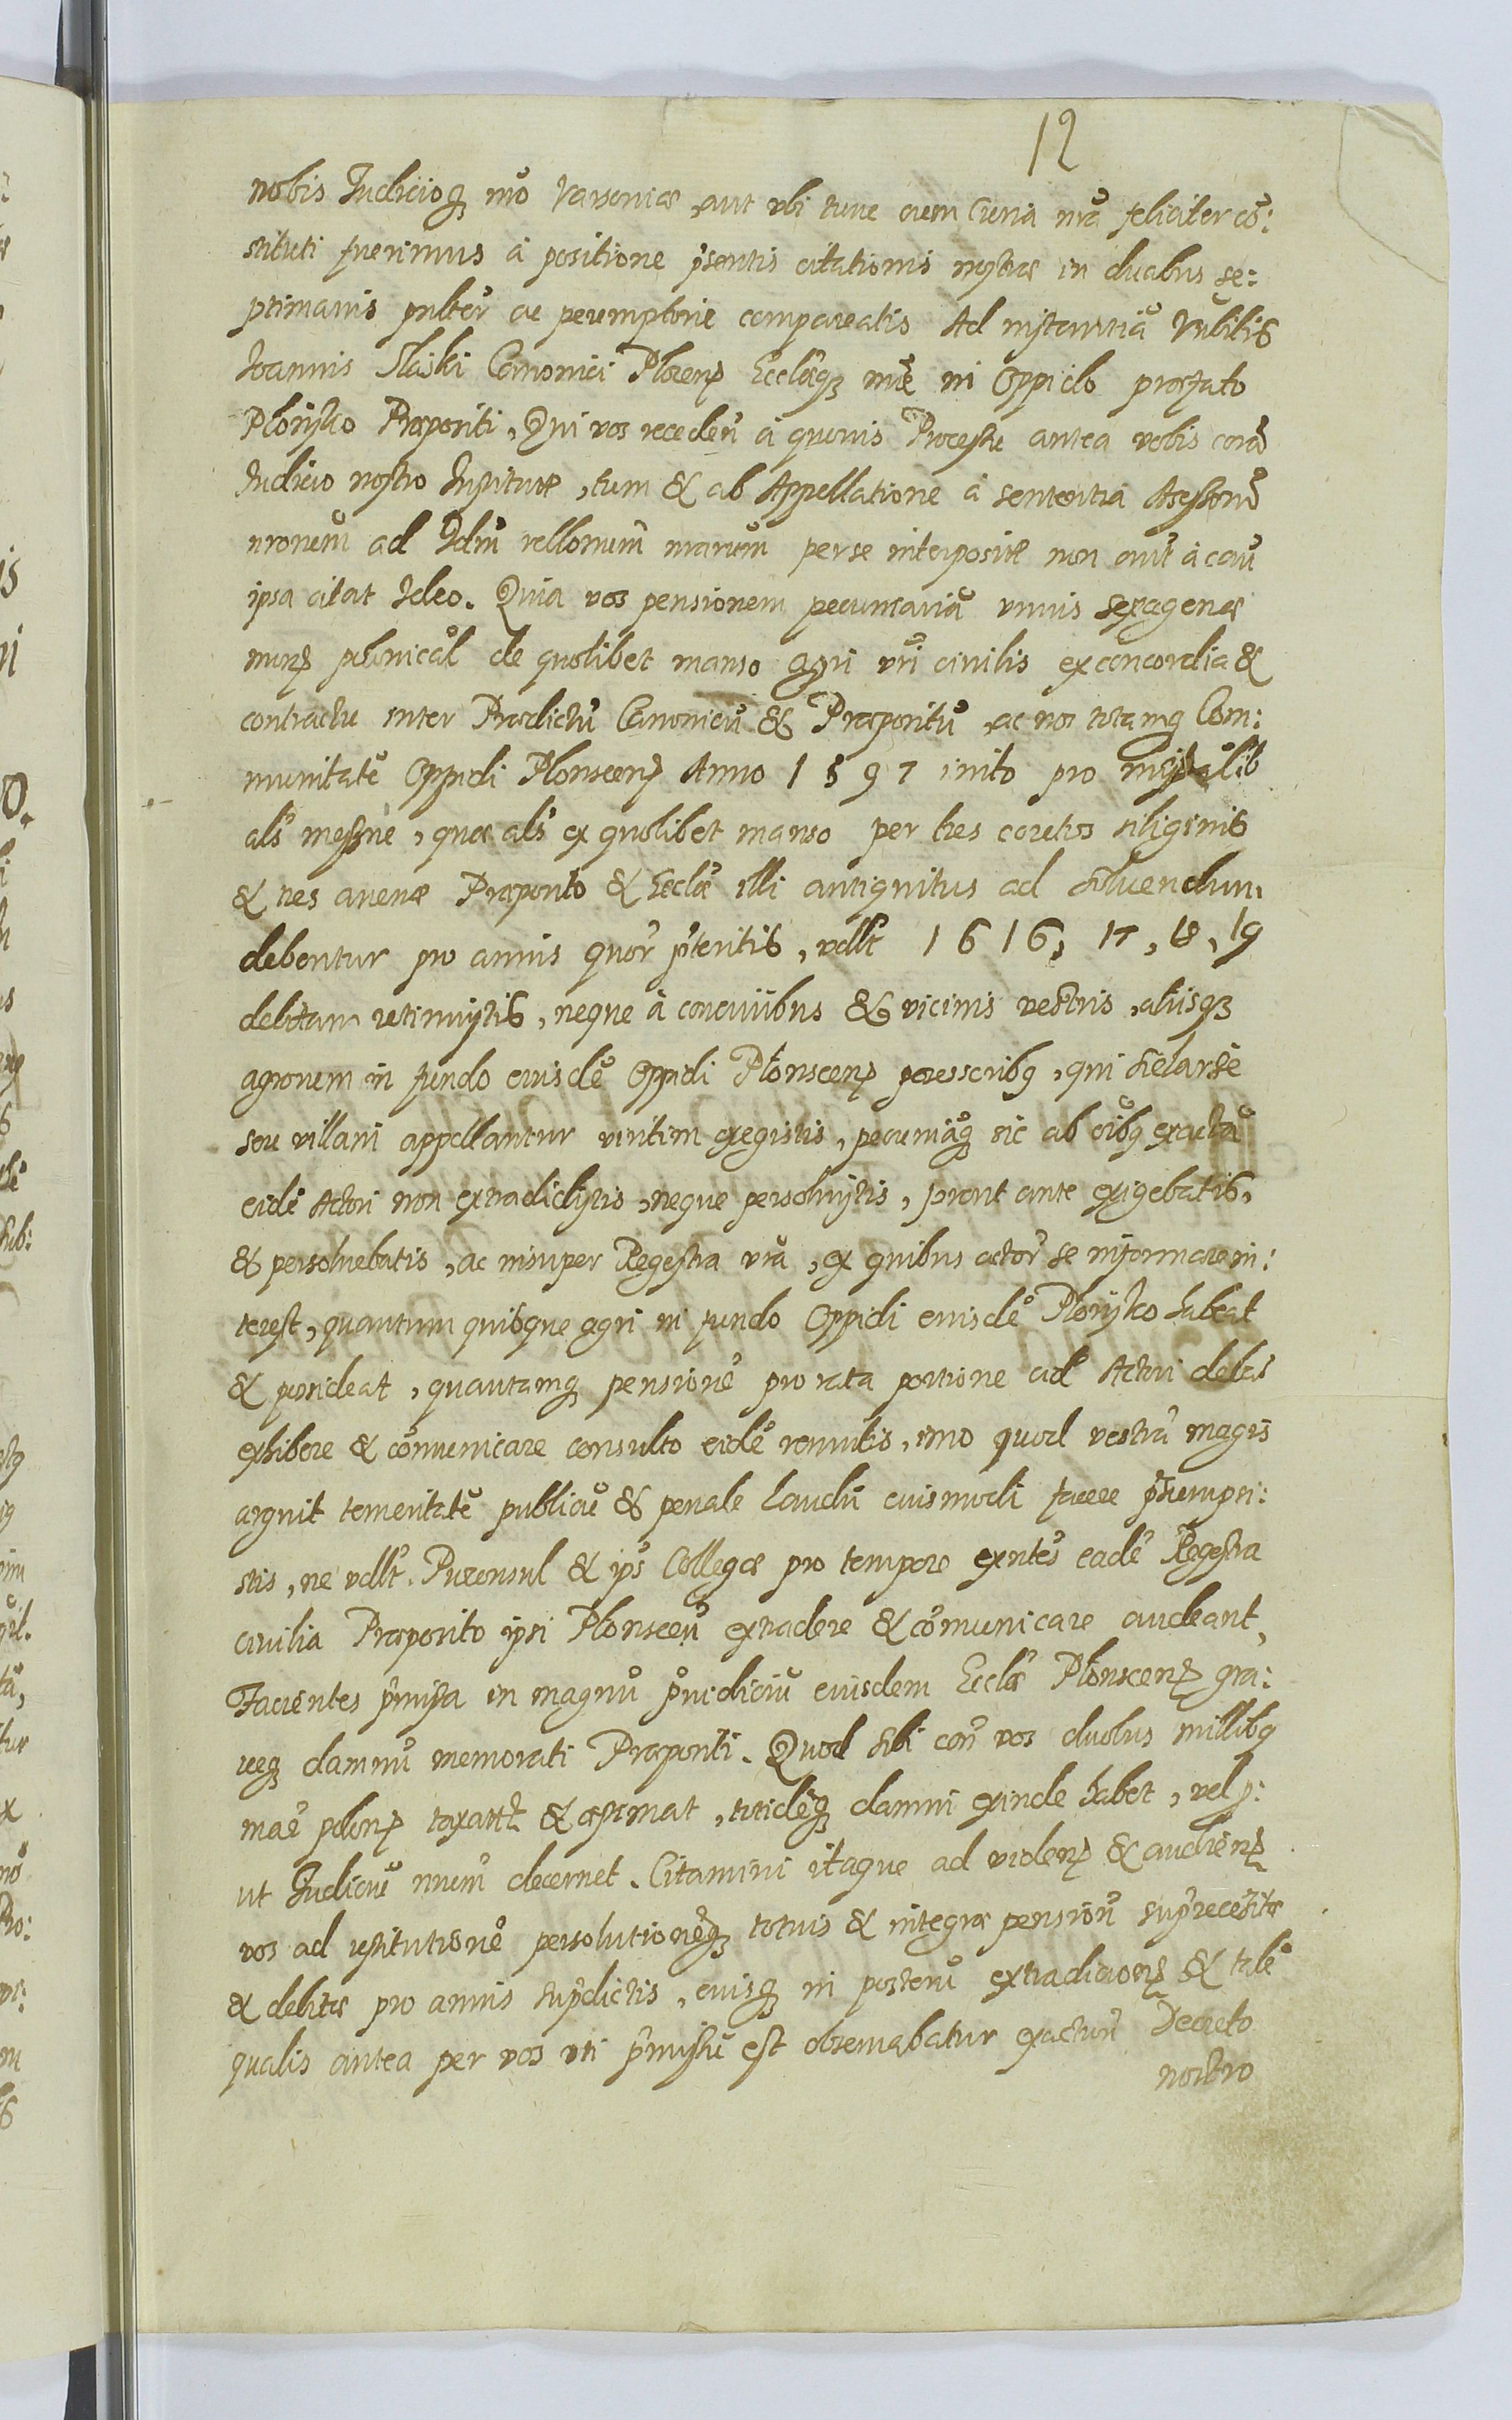 12
nobis Iudicioq; nrō Varsoviæ, aut ubi tunc cum Curia nrā feliciter cō:
stituti fuerimus à positione p̄sentis citationis nostræ in duabus se:
ptimanis pulter ac peremptorie compareatis Ad instantiā Vnblilis
Ioannis Slaski Canonici Plocen̄ Ecclæq; nræ in Oppido præfato
Plonsko Præpositi, Qui vos recedēn à quovis Processu antea vobis corā
Iudicio nostro Instituto, tum & ab Appellatione à sententia Assessorū
nrorum ad Idm̄ rellonum̄ nrarum per se interposita non aut̄ à cau
ipsa citat Ideo. Quia vos pensionem pecuniariā unius sexagenæ
num̄ polonical de quolibet manso agri vrī civilis ex concordia &
contractu inter Prædictū Canonicū & Præpositū, ac vos totamq; Com:
munitatē Oppidi Plonscen̄ Anno 1597 inito pro
als messne, quæ als ex quolibet manso per tres coretos siliginis
& tres avenæ Præposito & Ecclæ illi antiquitus ad solvendum
debentur pro annis quor p̄teritis, vdllt 1616, 17, 18, 19
debitam retinuistis, neque à concivibus & vicinis vestris, aliisq;
agrorum in fundo eiusdē Oppidi Plonscen̄ possessoribq, qui Sielarse
seu villani appellantur viritim exegistis, pecuniāq; sic ab oībq exactā
eidē Actori non extradidistis, neque persolvistis, prout ante exigebatis,
& persolvebatis, ac insuper Regestra vrā, ex quibus actor se informare in:
terest, quantum quisque agri in fundo Oppidi eiusdē Plonsko habeat
& possideat, quantamq; pensionē pro rata portione ad Actori debet
exhibere & cōmunicare consulto eidē renuitis, imo quod vestrā magis
arguit temeritatē publicū & penale Laudū eiusmodi facere p̄sumpsi:
stis, ne vdllt. Proconsul & ips̄ Collegæ pro tempore exntēs eadē Regestra
civilia Præposito ipsi Plonscen̄ extradere & cōmunicare audeant,
Facientes p̄missa in magnū p̄iudiciū eiusdem Ecclæ Plonscen̄ gra:
veq; damnū memorati Præpositi. Quod sibi con̄ vos duobus millibq
mar̄ polon̄ taxat & æstimat, totidēq; damni exinde habet, vel p:
ut Iudiciū nrum decernet. Citamini itaque ad viden̄ & audien̄
vos ad restitutionē persolutionēq; totius & integræ pension̄ sup̄recesitæ
& debitæ pro annis sup̄dictis, eiusq; in posterū extradicion̄ & talē
qualis antea per vos uti p̄missū est observabatur exactur̄ Decreto
nostro